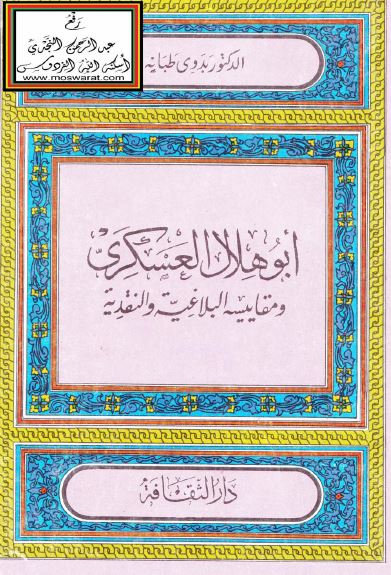 رفع
عبد الرحمن النجدي
أسكنه الله الفردوس
www.moswarat.com
الدكتور بدوى طبانه
أبو هلال العسكرى
ومقاييسه البلاغية والنقدية
دار الثقافة